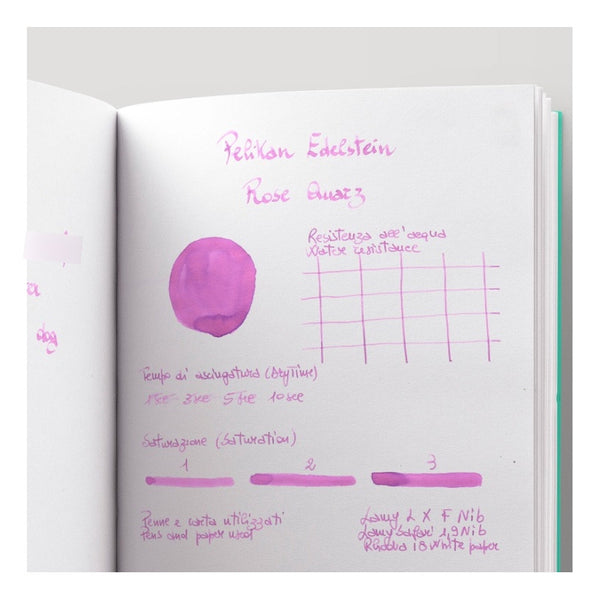 Pelikan Edelstein
Rose Quarz
Resistenza all'acqua
Water resistance
Tempo di asciugatura (DryTime)
1sec 3sec 5sec 10sec
Saturazione (Saturation)
1 2 3
Penne e carta utilizzati
Pens and paper used
Lamy L X F Nib
Lamy Safari 1,9 Nib
Rhodia 18 White paper
dog